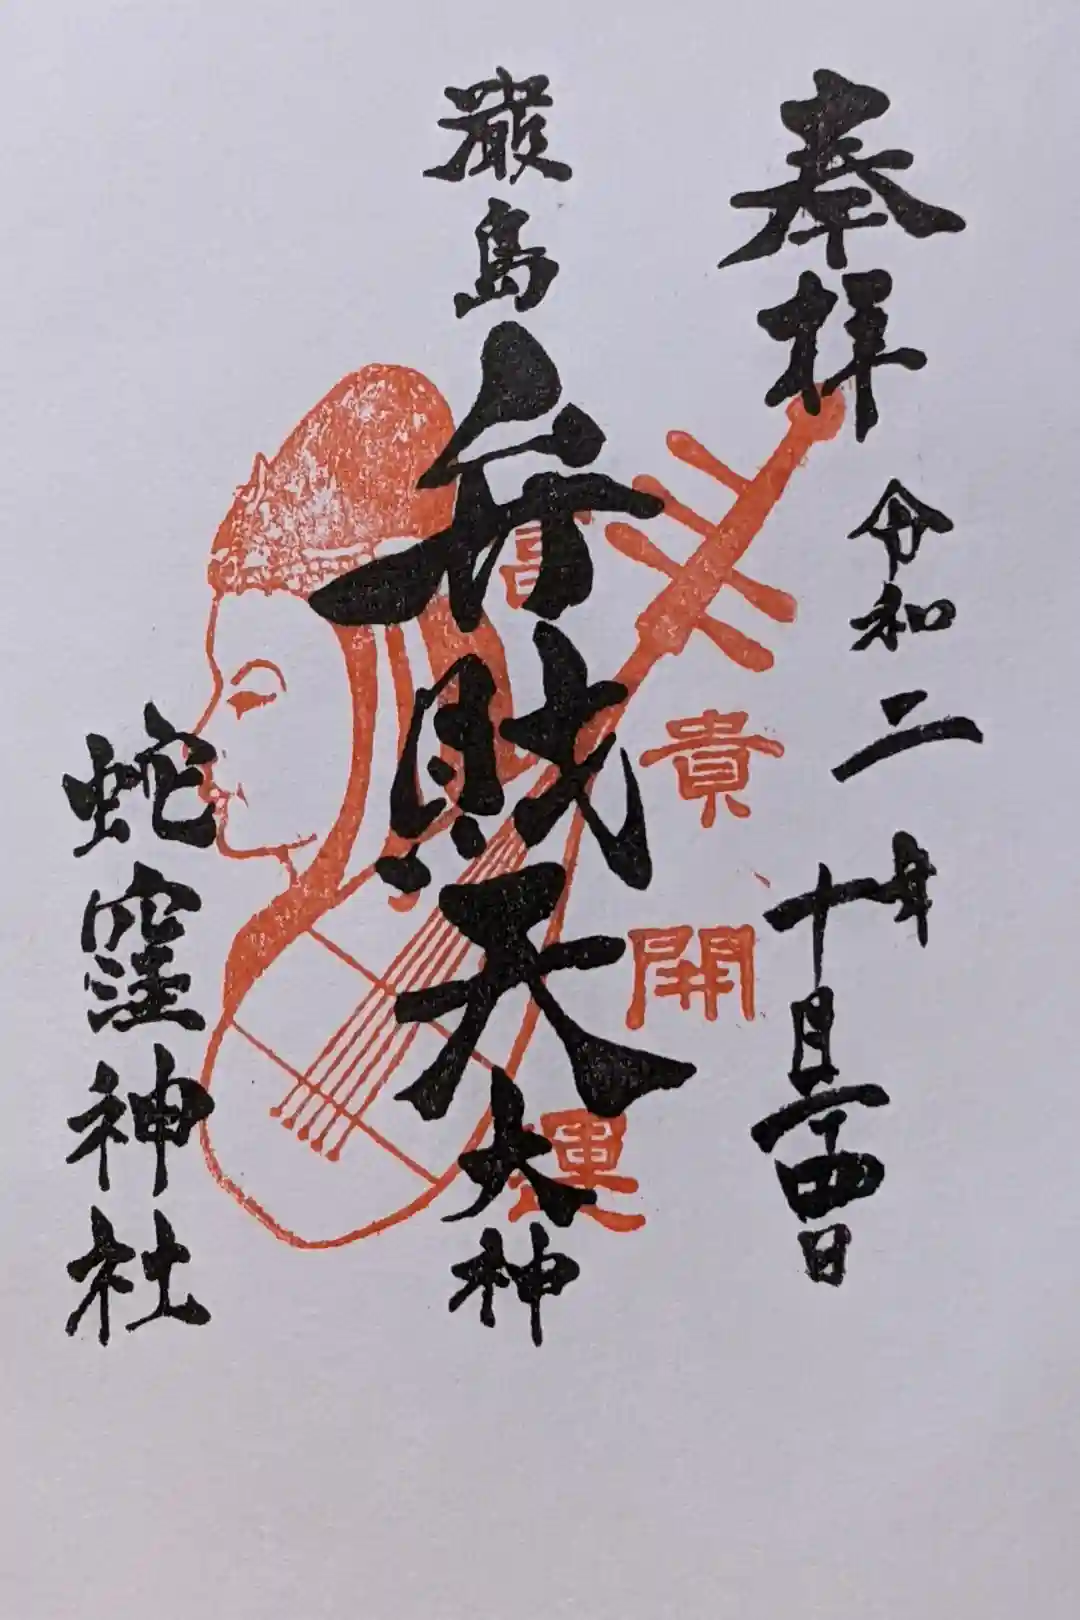 奉拝
令和二年
十月二十四日
厳島
弁財天
大神
富貴開運
蛇窪神社